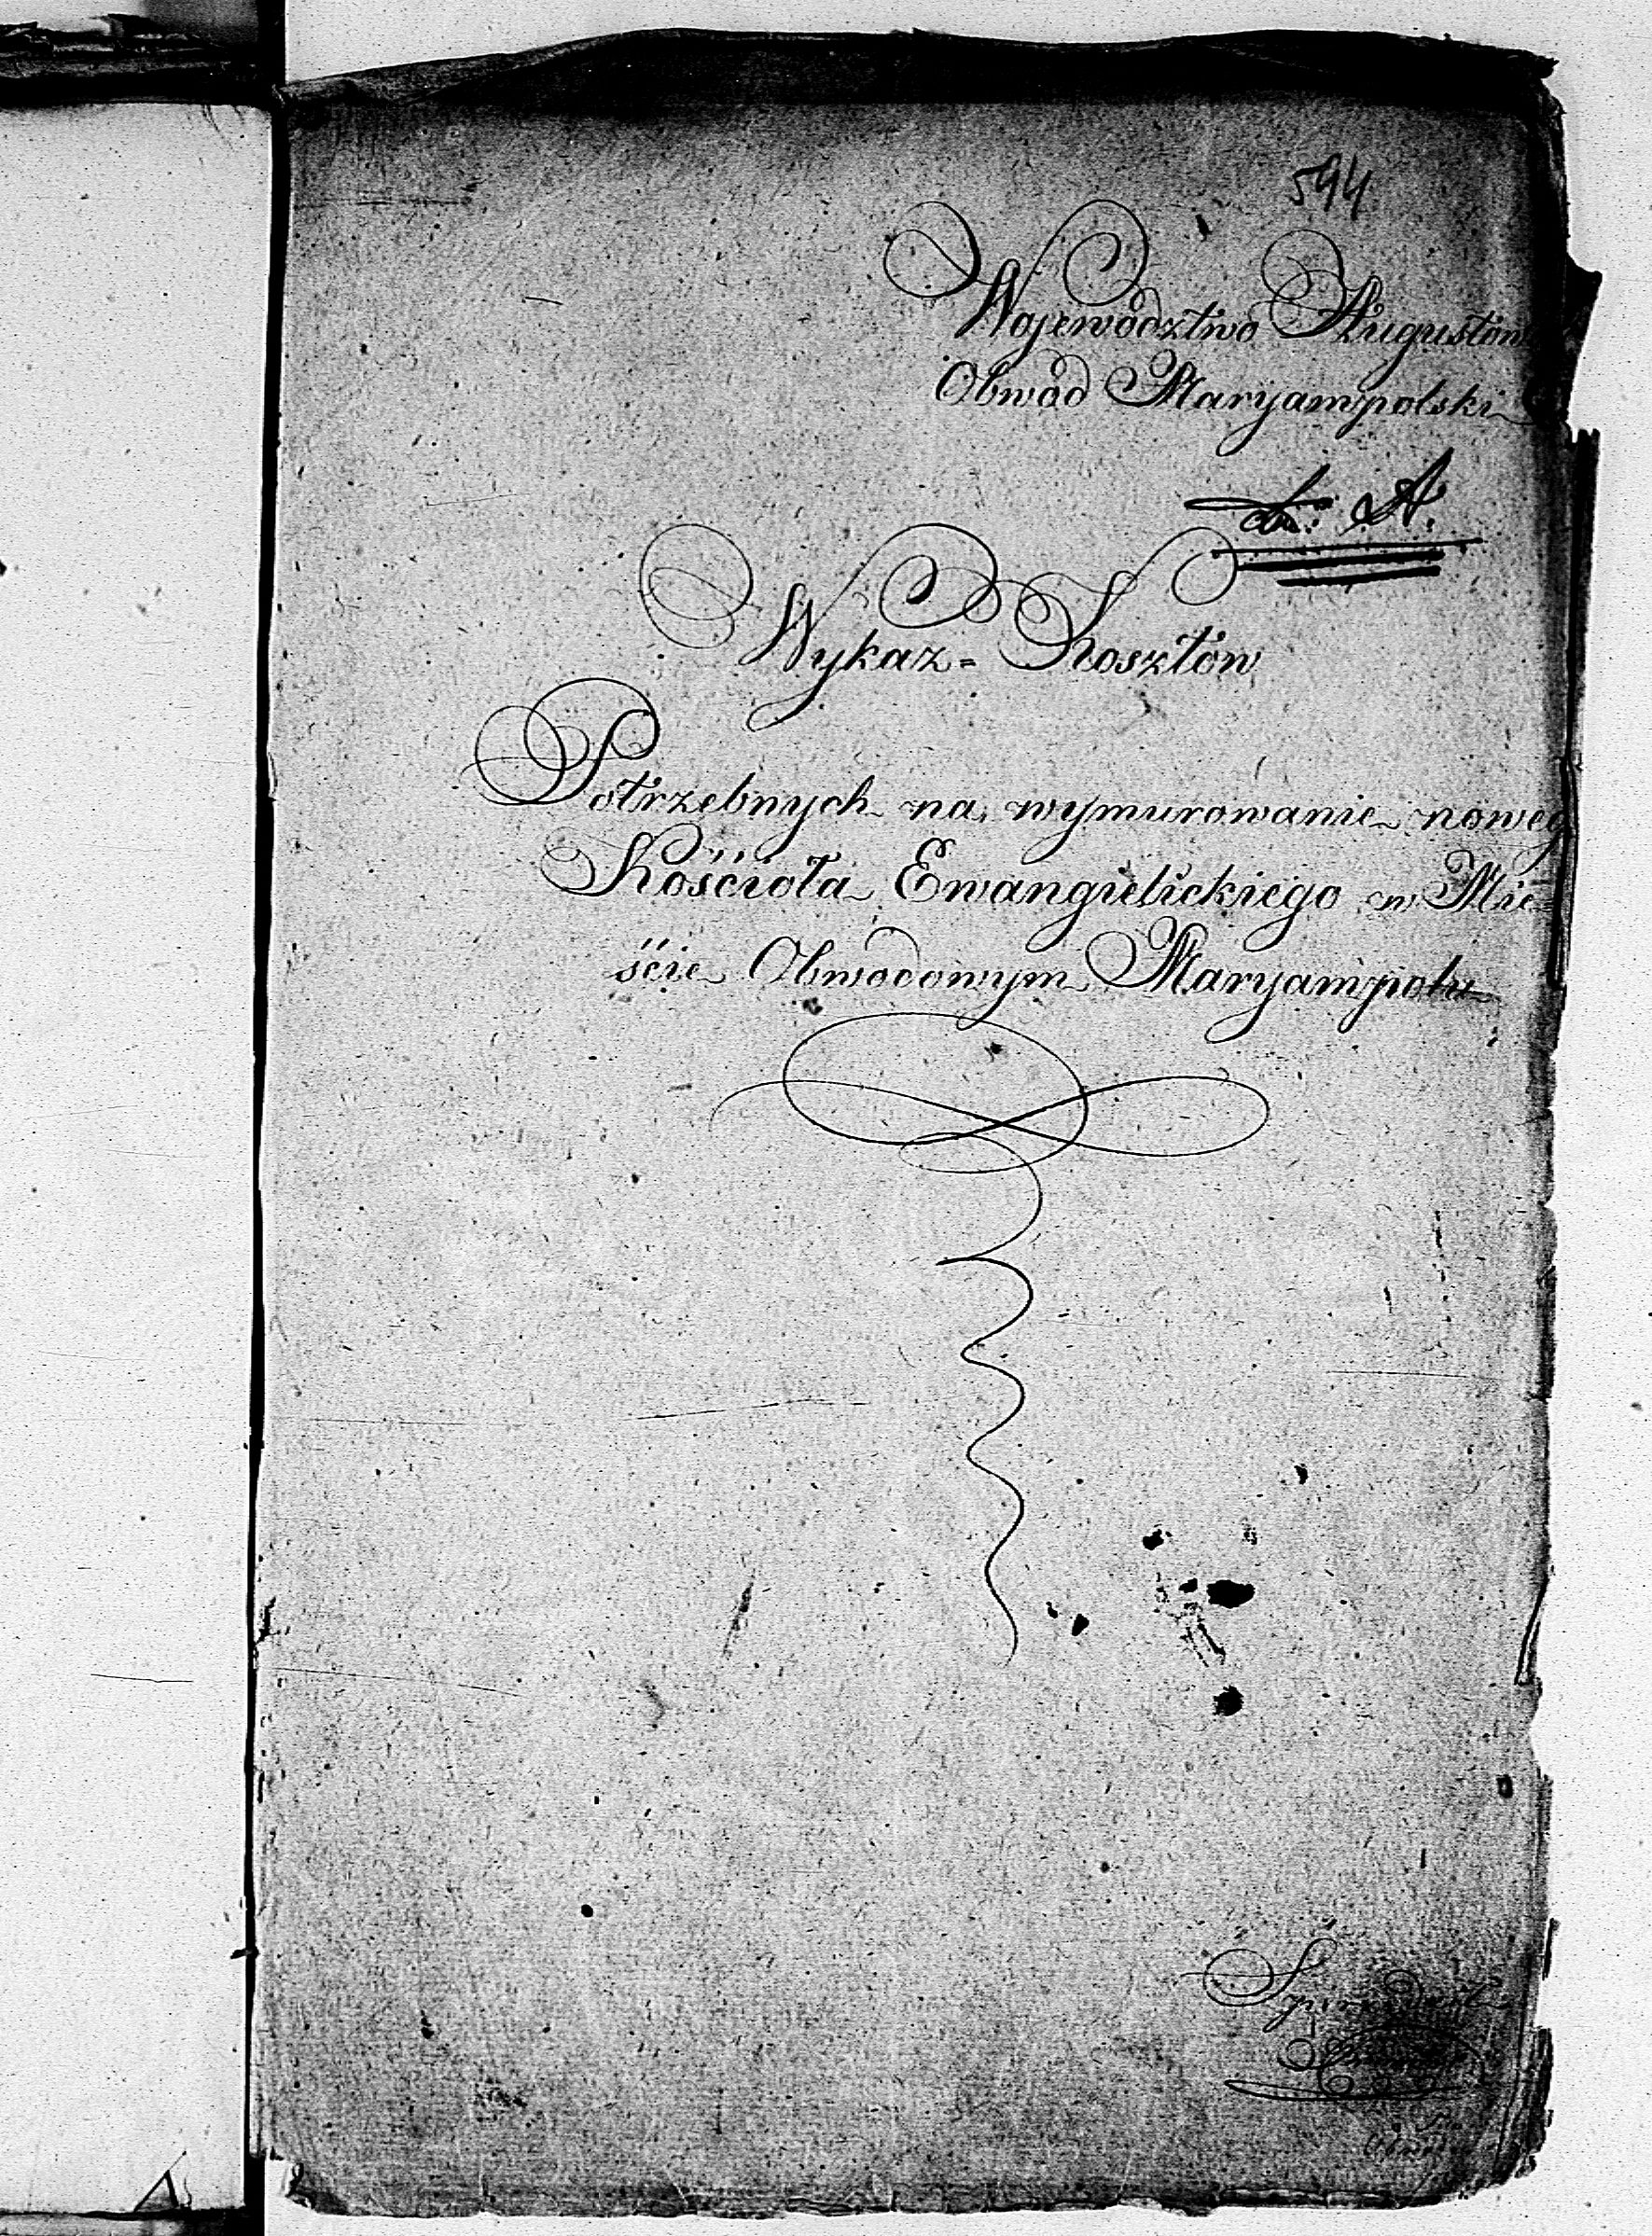 594
Wojewodztwo Augustow
Obwód Maryampolski
A.
Wykaz = Kosztow
Potrzebnych na wymurowanie noweg
Kościoła Ewangielickiego w Mie=
ście Obwodowym Maryampolu
Sporządził